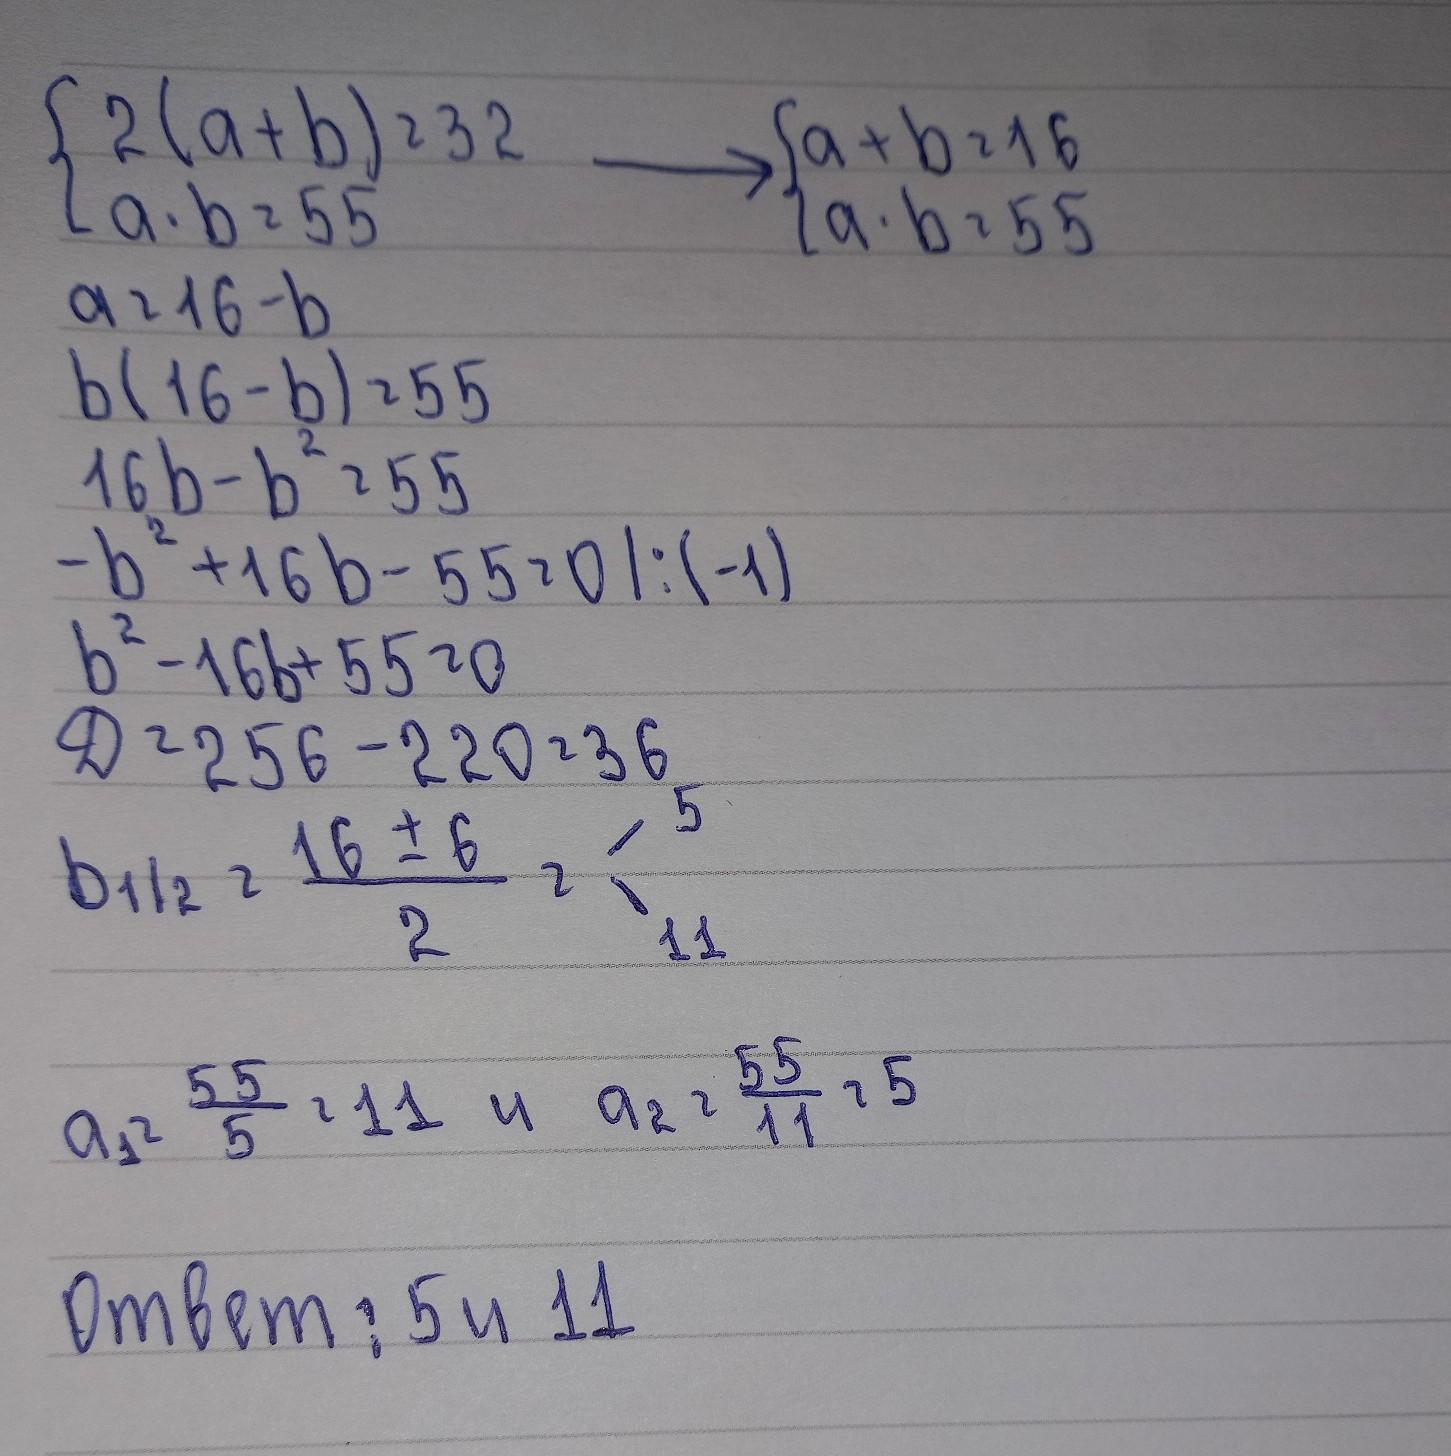 { 2(a+b)=32 → { a+b=16
{ a·b=55 { a·b=55
a=16-b
b(16-b)=55
16b-b²=55
-b²+16b-55=0 |:(-1)
b²-16b+55=0
D=256-220=36
b1/2 = 16±6/2 = 5 11
a₁=55/5=11 и a₂=55/11=5
Ответ: 5 и 11